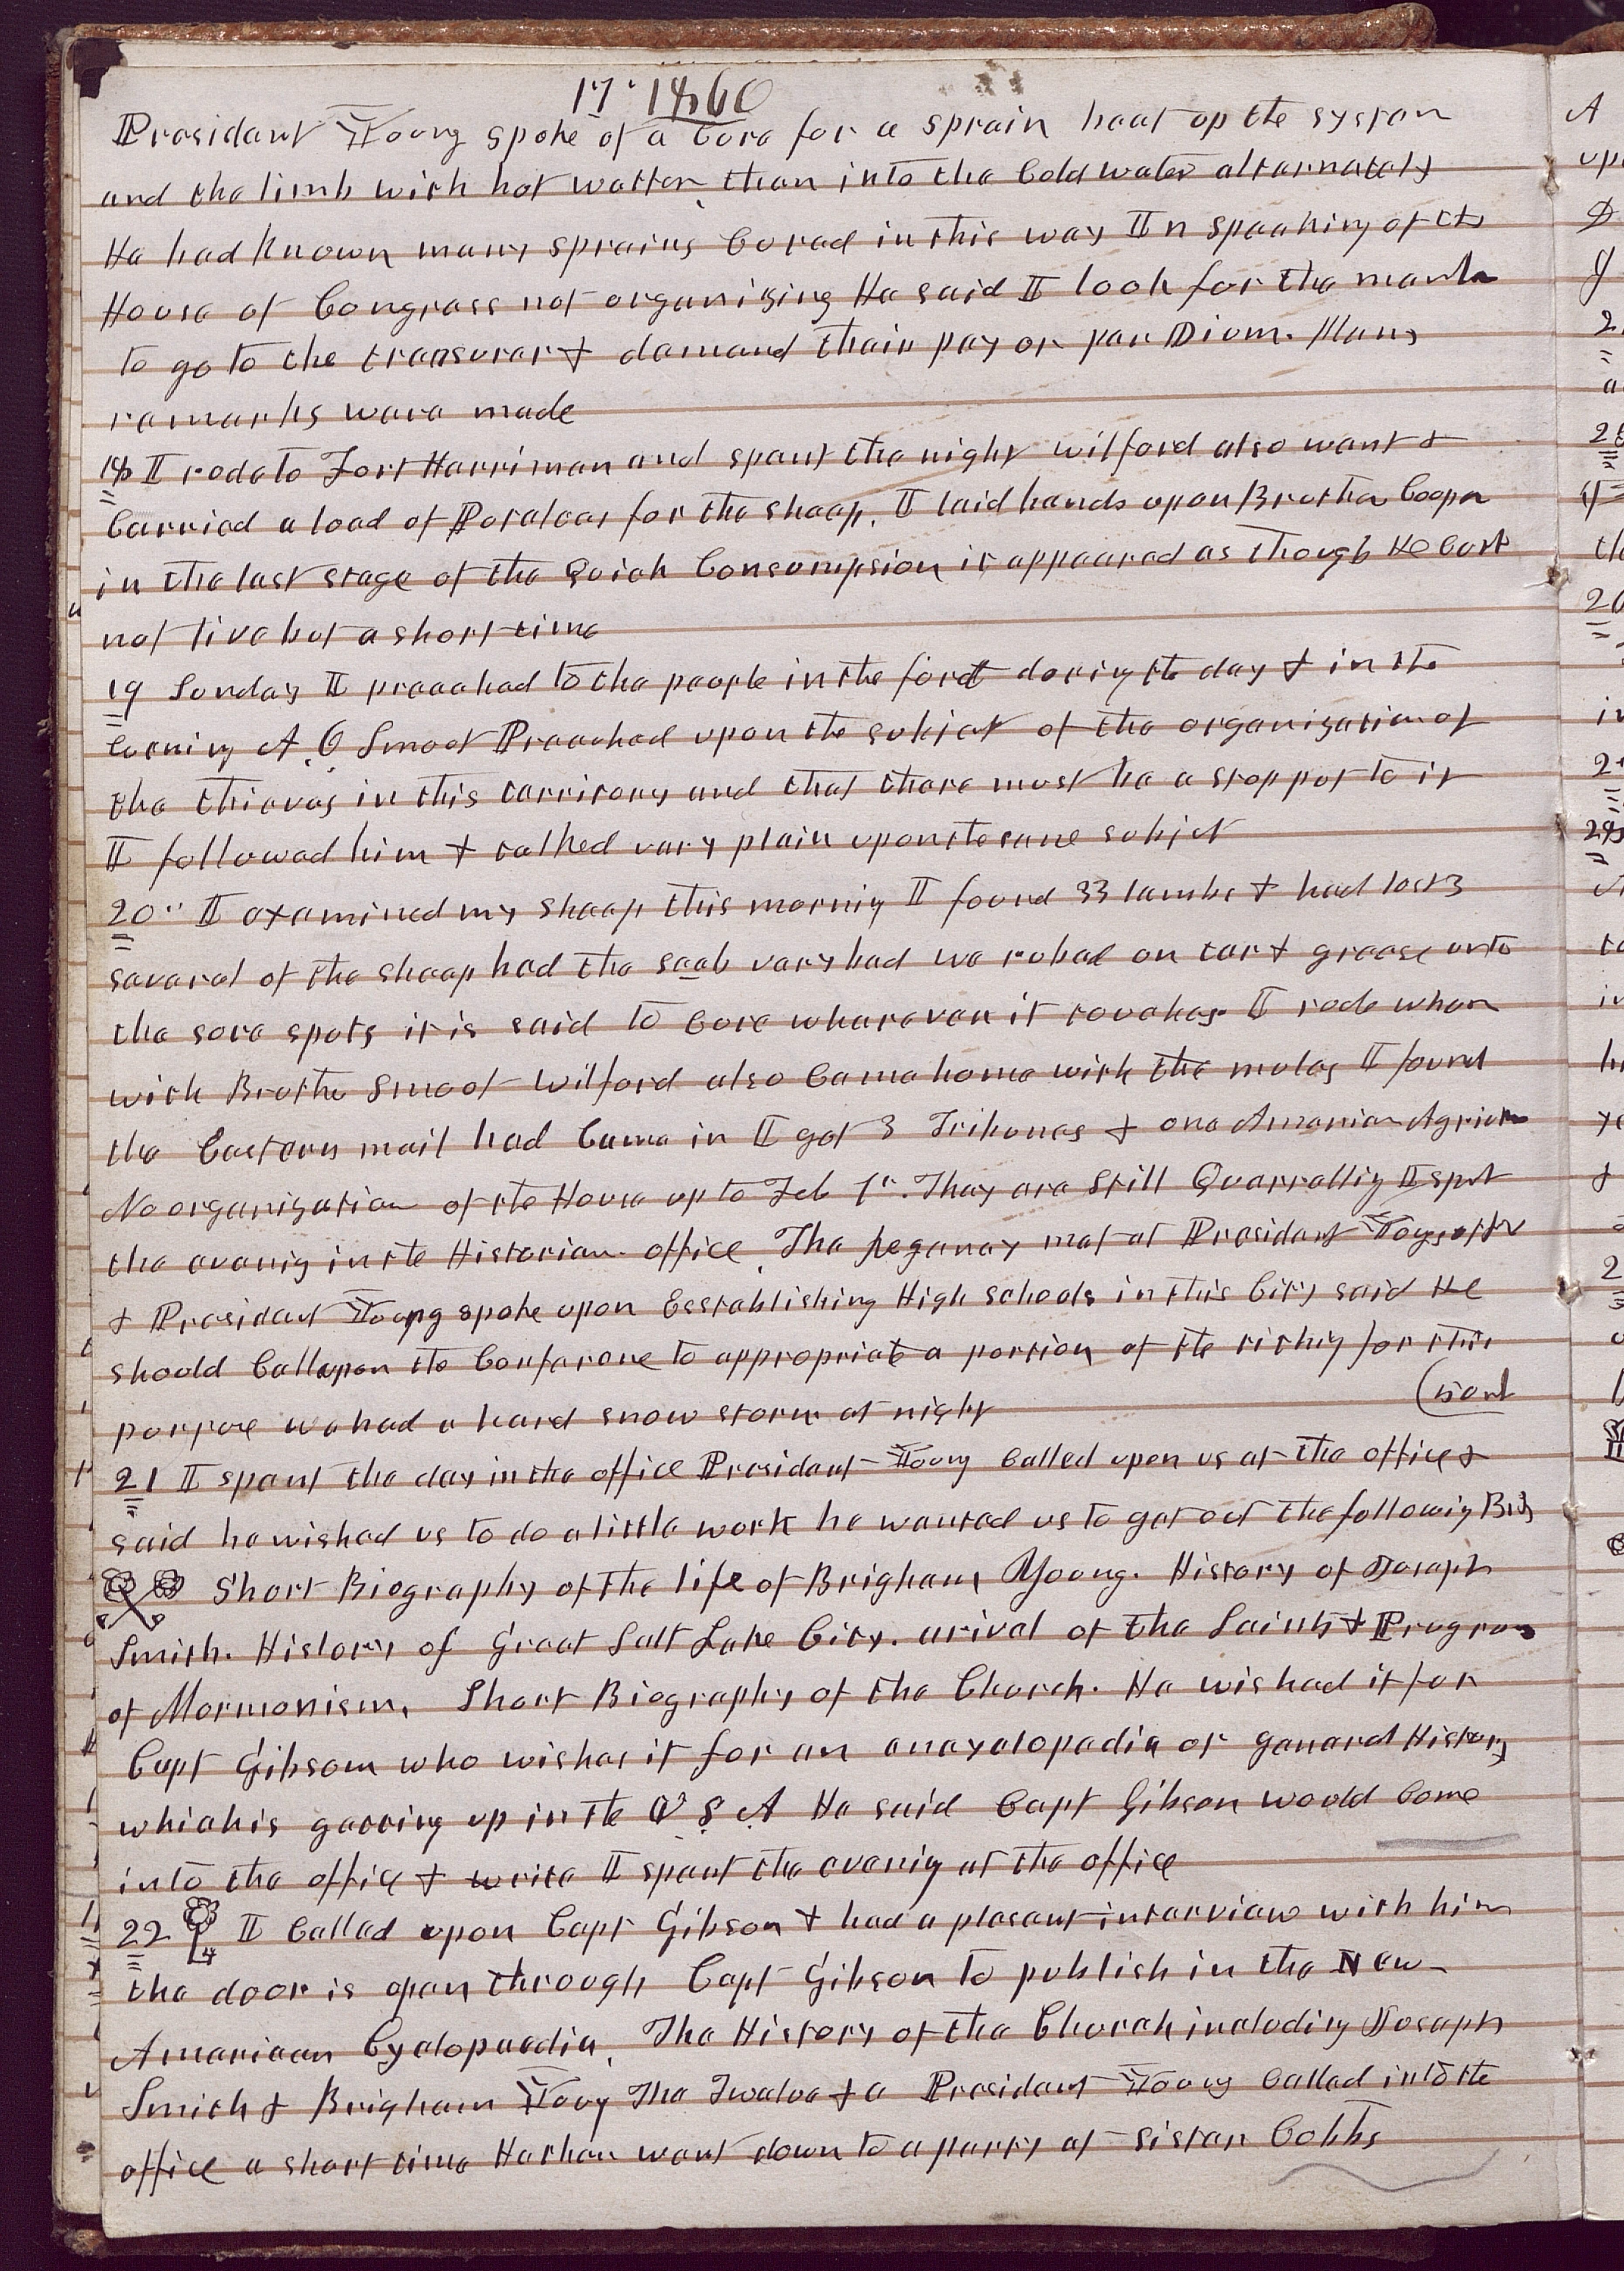 17. 1860
President Young spoke of a Cure for a sprain heat up the system
and the limb with hot watter then into the Cold water alternately
He had known many sprains Cured in this way In speaking of the
House of Congress not organizing He said I look for the memb
to go to the treasurer & demand their pay or per Diem. Many
remarks were made
18 I rode to Fort Harriman and spent the night wilford also went &
Carried a load of Potatoes for the sheep. I laid hands upon Brother Cooper
in the last stage of the Quick Consumpsion it appeared as though He Cout
not live but a short time
19 Sunday I preached to the people in the fort during the day & in the
Evening A. O. Smoot Preached upon the subject of the organization of
the thieves in this territory and that there must be a stop put to it
I followed him & talked very plain upon the same subject
20" I examined my sheep this mornig I found 33 lambs & had lost 3
several of the sheep had the scab very bad we rubed on tar & grease onto
the sore spots it is said to Cure wherever it touches I rode
with Brother Smoot Wilford also Came home with the mules I found
the Eastern mail had Came in I got 3 Tribunes & one American Agricut
No organization of the House up to Feb 1st. They are still Quarrellig I spent
the evenig in the Historian office. The Regency met at President Youngs office
& President Young spoke upon Esstablishing High Schools in this City said He
should Call upon the Conference to appropriate a portion of the tithig for this
purpose we had a hard snow storm at night
21 I spent the day in the office President Young Called upon us at the office &
said he wished us to do a little work he wanted us to get out the followig
Short Biography of the life of Brigham Young. History of Joseph
Smith. History of Great Salt Lake City. arival of the Saints & Progress
of Mormonism, Short Biography of the Church. He wished it for
Capt Gibsom who wishes it for an encyclopedia or general History
which is getting up in the U. S. A He said Capt Gibson would Come
into the office & write I spent the evenig at the office
22 I Called upon Capt Gibson & had a plesant interview with him
the door is open through Capt Gibson to publish in the New
American Cyclopaedia. The History of the Church includig Joseph
Smith & Brigham Young The Twelve &c President Young Called into the
office a short time He then went down to a party at Sister Cobbs